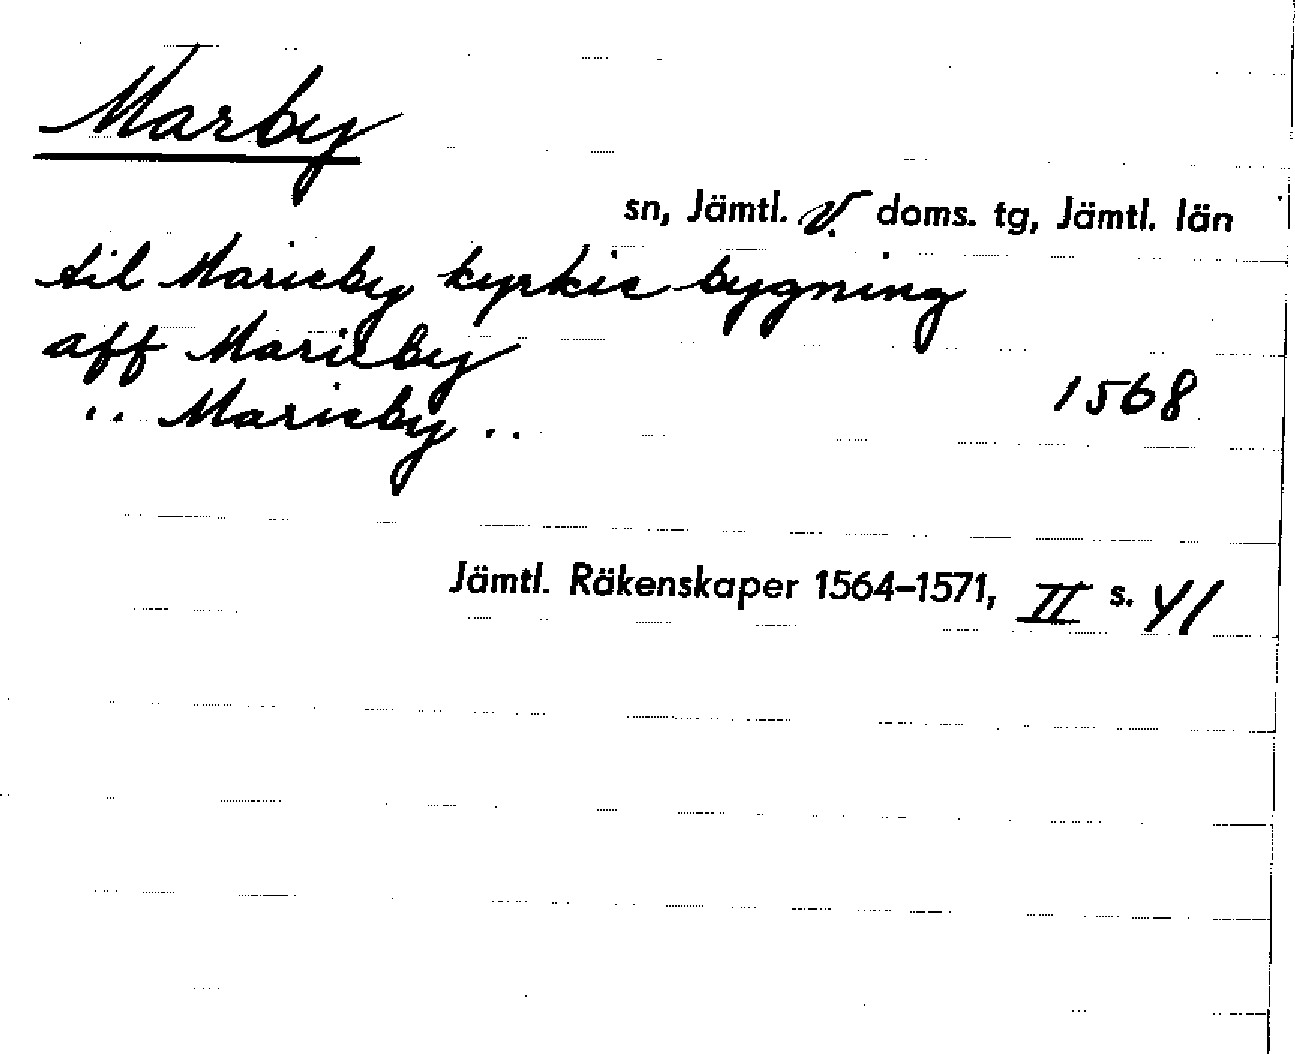 Marby
sn, Jämtl. v. doms. tg, Jämtl. län
til Marieby kyrkie bygning
aff Marieby
" Marieby ..
1568
Jämtl. Räkenskaper 1564–1571, II s. 41